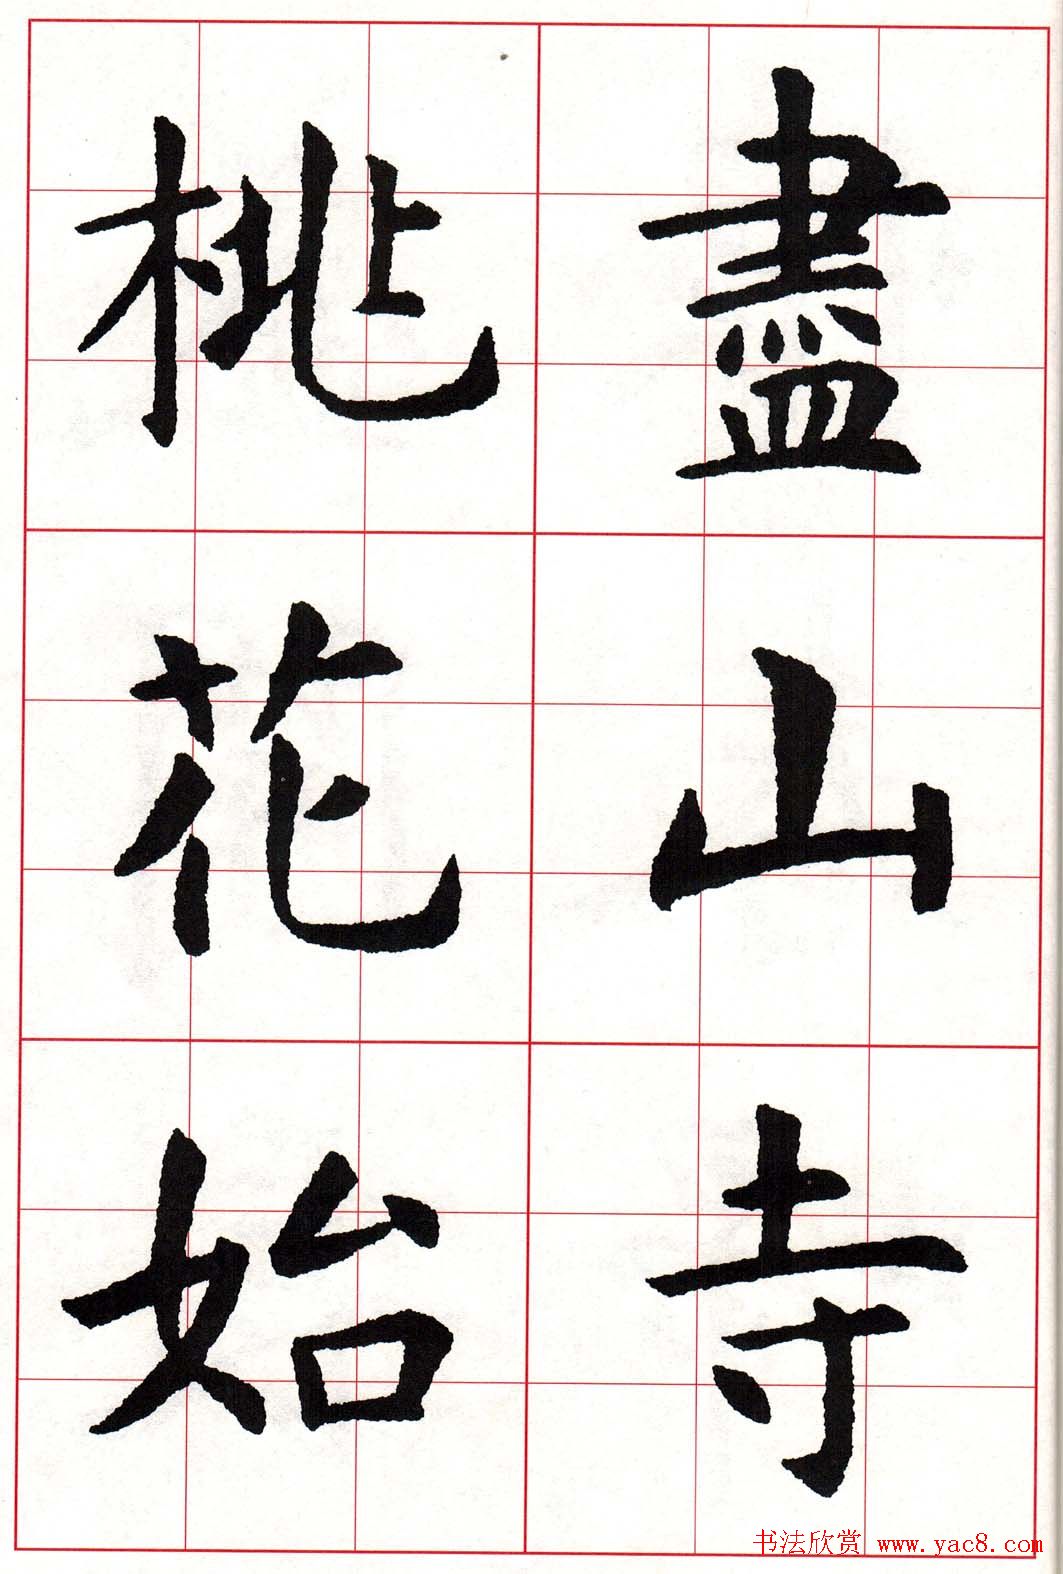 盡山寺
桃花始
书法欣赏 www.yac8.com